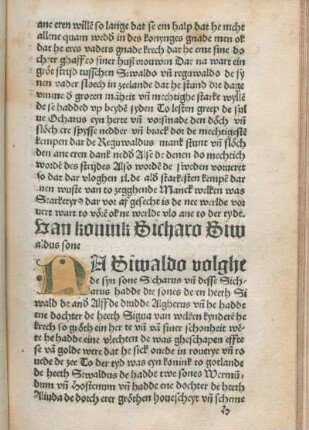 ane eren willē so lange dat se em halp dat he nicht
allene quam wedd in des konynges gnade men ok
dat he eres vaders gnade krech dat he eme sine do
chter ghaff to siner huß vrouwen Dar na wart ein
grōt strijd tusschen Siwaldo vñ reguwaldo de sy
nen vader sloch in zeelande dat he stund drē dage
vmme ō groten māheit vñ mechtighe starke wyllē
de se hadded vp beydē syden To lesten greep de sul
ue Otharus eyn herte vñ vorsmade den dōch vñ
slōch ere spysse nedder vñ brack dor de mechtigestē
kempen dar de Reguwaldus mank stunt vñ slōch
den ane eren dank nedō Also de denen do mechtich
wordē des strijdes Also wordē de sweden vorueret
so dat dar vloghen de alō starksten kempē dar
men wuste van to zegghende Manck welken was
Starketyr dar vor af gesecht is de nee werlde vor
uert wart to vōrē ok ne werlde vlo ane to der tydt.
Van konink Sicharo Siw
aldus sone
NA Siwaldo volghe
de syn sone Sicharus vñ desse Sich-
arus hadde dre sones de en heeth Si
wald de anō Alff de drudde Algherus vñ he hadde
ene dochter de heeth Sigva van welken kynderē he
krech so grōth ein her te vñ vā siner schonheit wē-
te he hadde eine vlechten de was gheschapen effte
se vā golde were dat he sick ouede in rouerye vñ ro
uede de zee To der tyd was eyn konink to gotlande
de heeth Siwaldus de hadde twe sones Wermū-
dum vñ Hostenum vñ hadde ene dochter de heeth
Aliuda de dorch erer grōthen houescheyt vñ schene